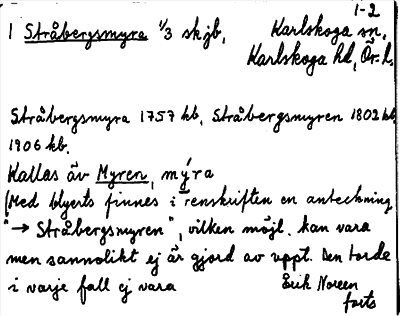 1-2
1 Stråbergsmyra 1/3 skjb, Karlskoga sn,
Karlskoga hd, Ör. l.
Stråbergsmyra 1757 hb, Stråbergsmyren 1802 hb,
1906 kb.
Kallas äv Myren, mýra
(Med blyerts finnes i renskriften en anteckning
"→ Stråbergsmyren", vilken möjl. kan vara
men sannolikt ej är gjord av uppt. Den torde
i varje fall ej vara Erik Noreen
forts